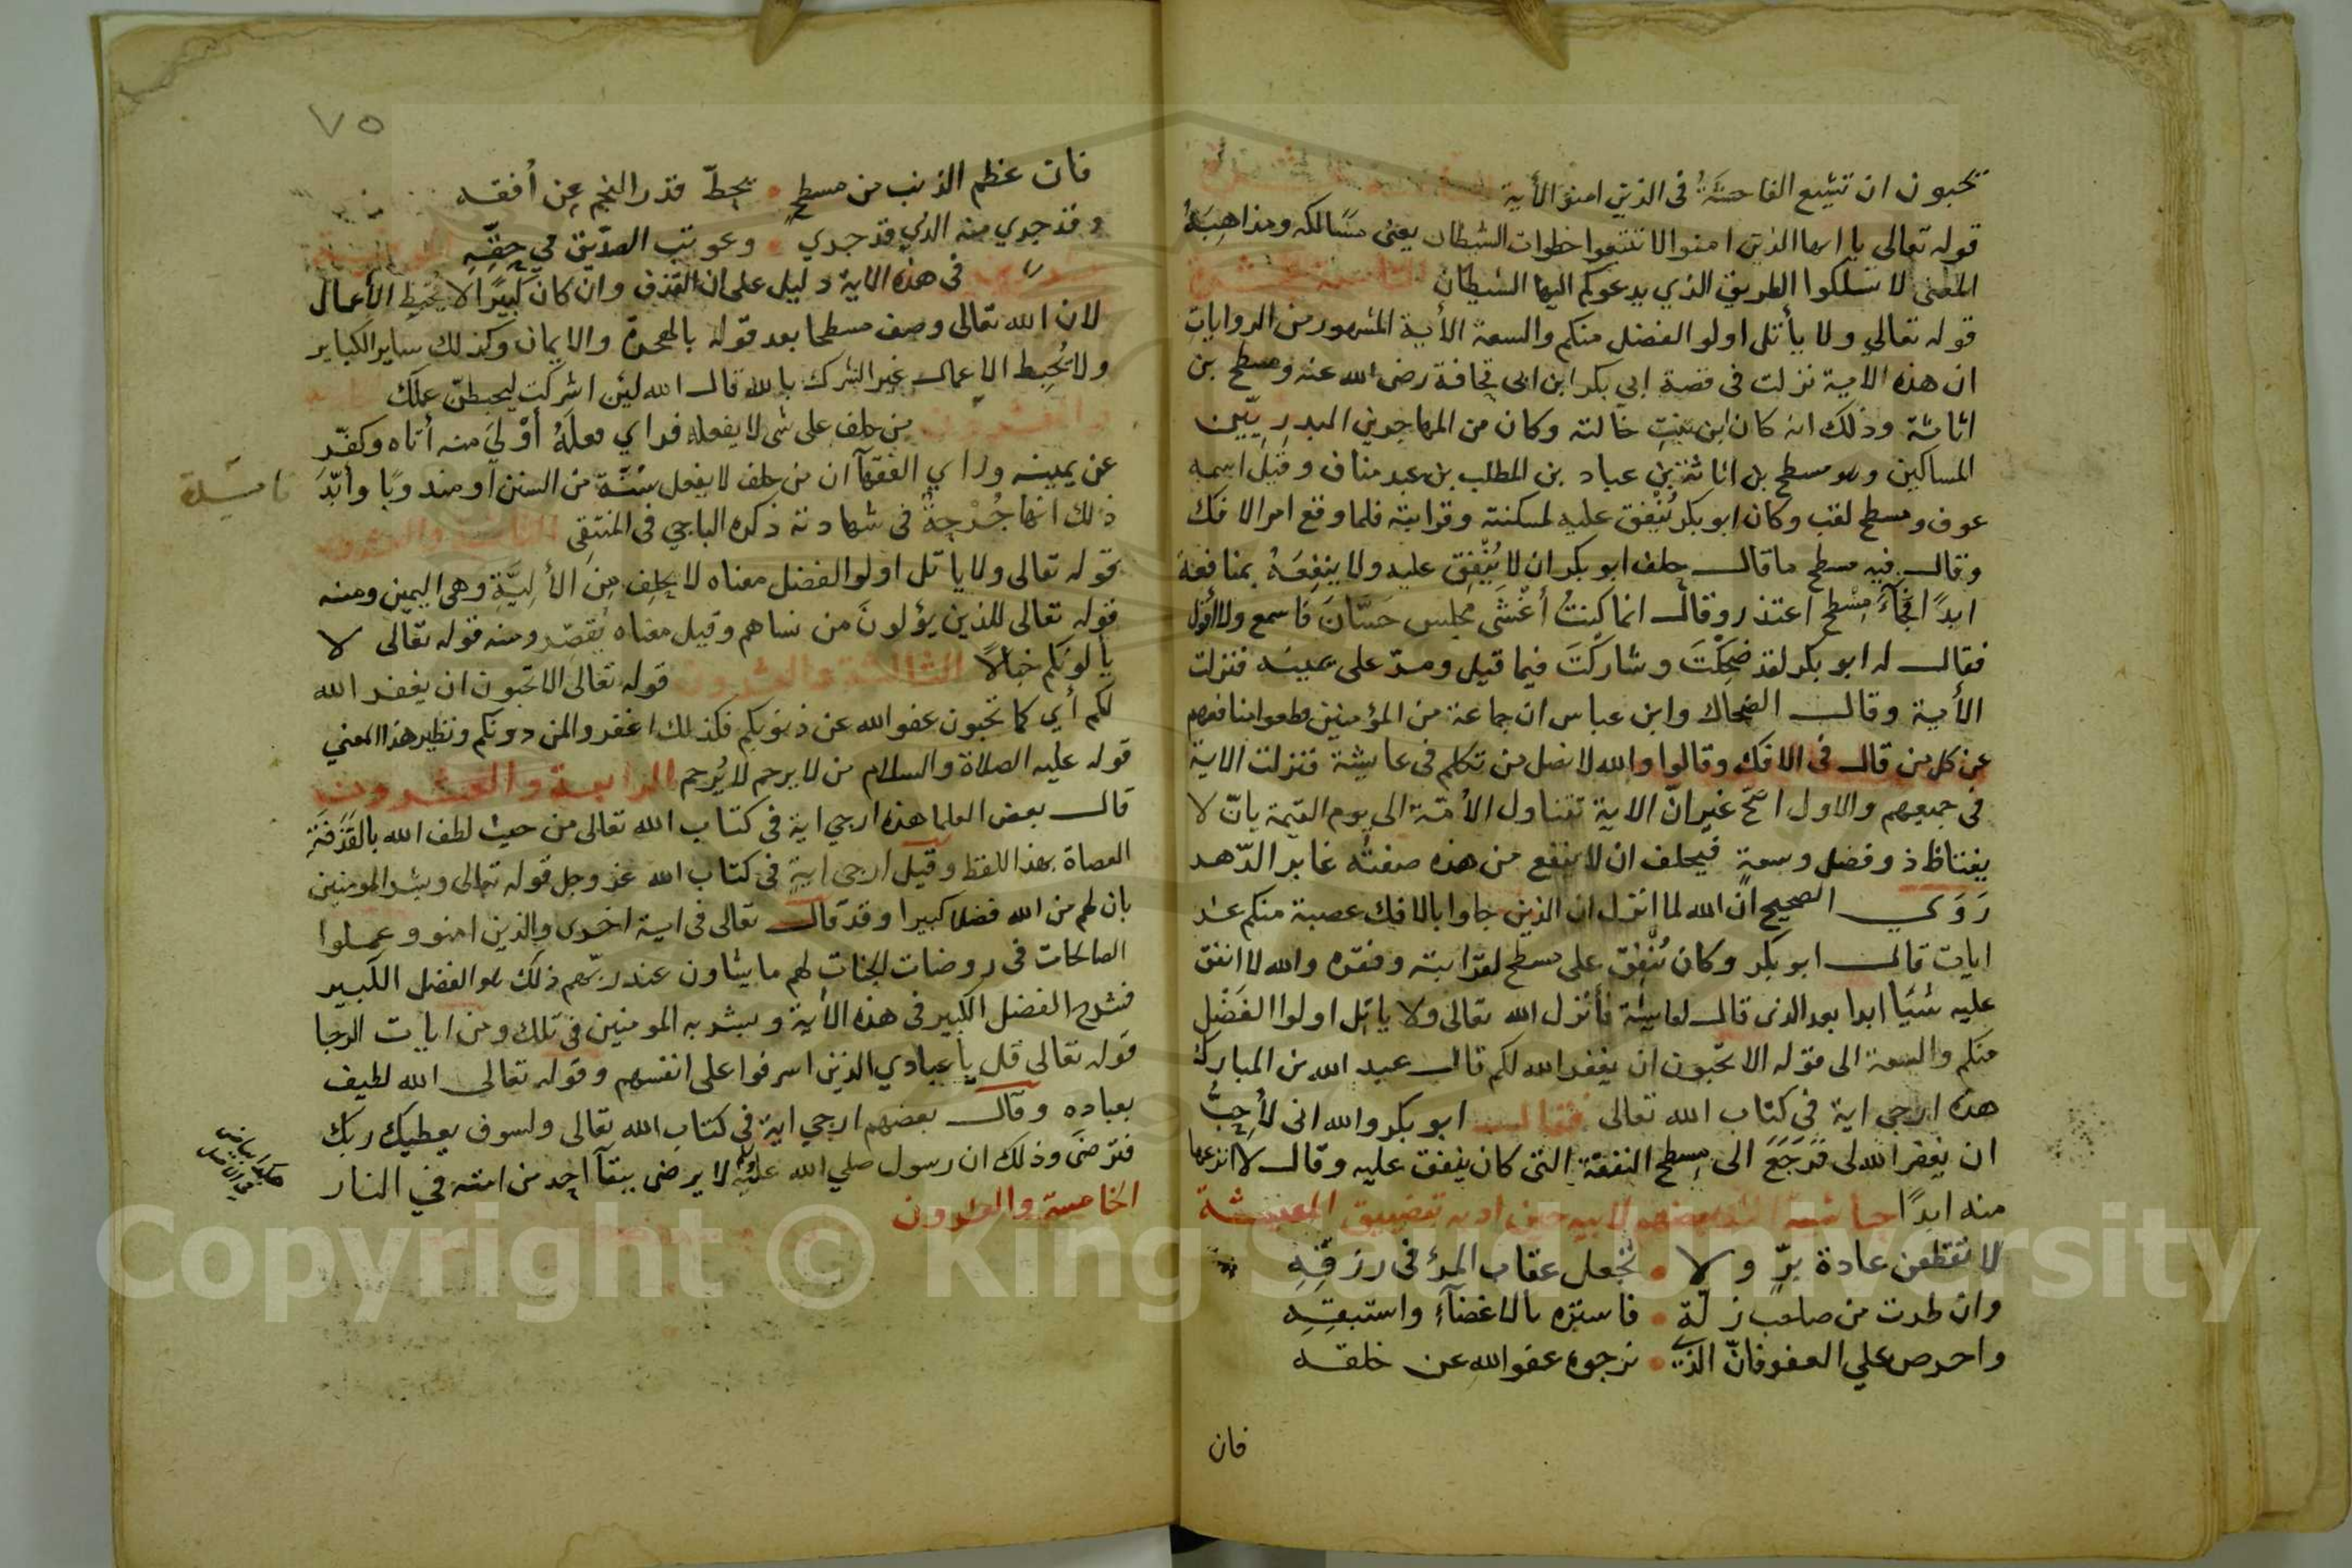 تحبون ان تشيع الفاحشَةُ فى الذين امنو الأية
قوله تعالى يا ايها الذين امنوا لا تتبعوا خطوات الشيطان يعنى مسَالكه ومذاهِبَهُ
المعنى لا تسلكوا الطريق الذي يدعوكم اليها الشيطان
قوله تعالي ولا يأتل اولو الفضل منكم والسعة الأية المشهور من الروايات
ان هذه الاية نزلت فى قصة ابي بكر ابن ابى قحافة رضى الله عنه ومسطح بن
اثاثة وذلك انه كان ابن بنتِ خالته وكان من المهاجرين البدرِيّين
المساكين وهو مسطح بن اثاثة بن عباد بن المطلب بن عبد مناف وقيل اسمه
عوف ومسطح لقب وكان ابو بكر يُنْفق عليه لمسكنته وقرابته فلما وقع امر الافك
وقال فيه مسطح ما قال حلف ابو بكر ان لا يُنْفِق عليه ولا ينفِعَهُ بمنافعة
ابدًا فجآءَ مِسْطح اعتذر وقال انما كنتُ أغْشَى مجلس حَسَّانَ فاسمع ولا أقول
فقال له ابو بكر لقد ضحِكْتَ وشاركتَ فيما قيل ومرّ على يمينه فنزلت
الأية وقال الضحاك وابن عباس ان جماعة من المؤمنين قطعوا منافعهم
عن كل من قال فى الافك وقالوا والله لا نصل من تكلم فى عايشة فنزلت الاية
فى جميعهم والاول اصحّ غير انّ الاية تتناول الأمّة الى يوم القيمة بانّ لا
يغتاظ ذو فضل وسعةٍ فيحلف ان لا ينفع من هذه صفتُه غابر الدّهر
رَوَى الصحيح انّ الله لما انزل ان الذين جاوا بالافك عصبة منكم عشر
ايات قال ابو بكر وكان يُنْفِقُ على مسطح لقرابته وفقره والله لا انفق
عليه شيًا ابدا بعد الذى قال لعايشة فأنزل الله تعالى ولا ياتل اولوا الفَضْلِ
منكم والسعة الى قوله الا تحبّون ان يغفر الله لكم قال عبد الله بن المبارك
هذه ارجى اية فى كتاب الله تعالى فقال ابو بكر والله انى لأُحِبُّ
ان يغفر الله لى فَرَجَعَ الى مِسطح النفقة التى كان ينفق عليه وقال لا انزعها
منه ابدًا
لا تقطعن عادة برّ ولا • تجعل عقاب المرْ فى رزقِهِ
وان طرت من صاحب زلّة • فاستره بالاغضآءِ واستبقِهِ
واحرص علي العفو فانّ الذي • نرجوه عفو الله عن خلقه
فان
٧٥
فان عظم الذنب من مسطحٍ • يحطّ قدر النجم عن أفقه
وقد جري منه الذي قد جري • وعوتب الصدّيق في حقّهِ
فى هذه الاية دليل على ان القذف وان كان كبيرًا لا يُحبِطِ الأعمال
لان الله تعالى وصف مسطحا بعد قوله بالهجرة والايمان وكذلك ساير الكباير
ولا يُحبِط الاعمال غير الشرك بالله قال الله لين اشركت ليحبطنّ عملك
من حلف على شى لا يفعله فراي فعلَهُ أوْلَي منه أتاه وكفّر
عن يمينه وراي الفقهآ ان من حلف لا يفعل سُنّةً من السنن او مندوبًا وأبّدَ
ذلك انها جُرْحِةً فى شهادته ذكره الباجي فى المنتقى الثانية والعشرون
قوله تعالى ولا ياتل اولوا الفضل معناه لا يحلِف مِنَ الأَلِيَّةِ وهى اليمين ومنه
قوله تعالى للذين يؤلونَ من نساهم وقيل معناه يُقصّر ومنه قوله تعالى لا
يألونكم خبالًا الثالثة والعشرون قوله تعالى الا تحبون ان يغفر الله
لكم أي كما تحبون عفو الله عن ذنوبكم فكذلك اغفروا لمن دونكم ونظير هذا المعني
قوله عليه الصلاة والسلام من لا يرحم لا يُرحم الرابعة والعشرون
قال بعض العلما هذه ارجى اية فى كتاب الله تعالى من حيث لطف الله بالقَذَفَةِ
العصاة بهذا اللفظ وقيل ارجى ايةٍ فى كتاب الله عز وجل قوله تعالى وبشر المومنين
بان لهم من الله فضلا كبيرا وقد قال تعالى فى اية اخرى والذين امنو وعملوا
الصالحات فى روضات الجنات لهم ما يشاون عند ربّهم ذلك هو الفضل الكبير
فشرح الفضل الكبير فى هذه الأية وبشر به المومنين فى تلك ومن ايات الرجا
قوله تعالى قل يا عبادي الذين اسرفوا على انفسهم وقوله تعالى الله لطيف
بعباده وقال بعضهم ارجي اية فى كتاب الله تعالى ولسوف يعطيك ربك
فترضَى وذلك ان رسول صلي الله عليه لا يرضى ببقآ احد من امته في النار
الخامسة والعشرون
Copyright © King Saud University